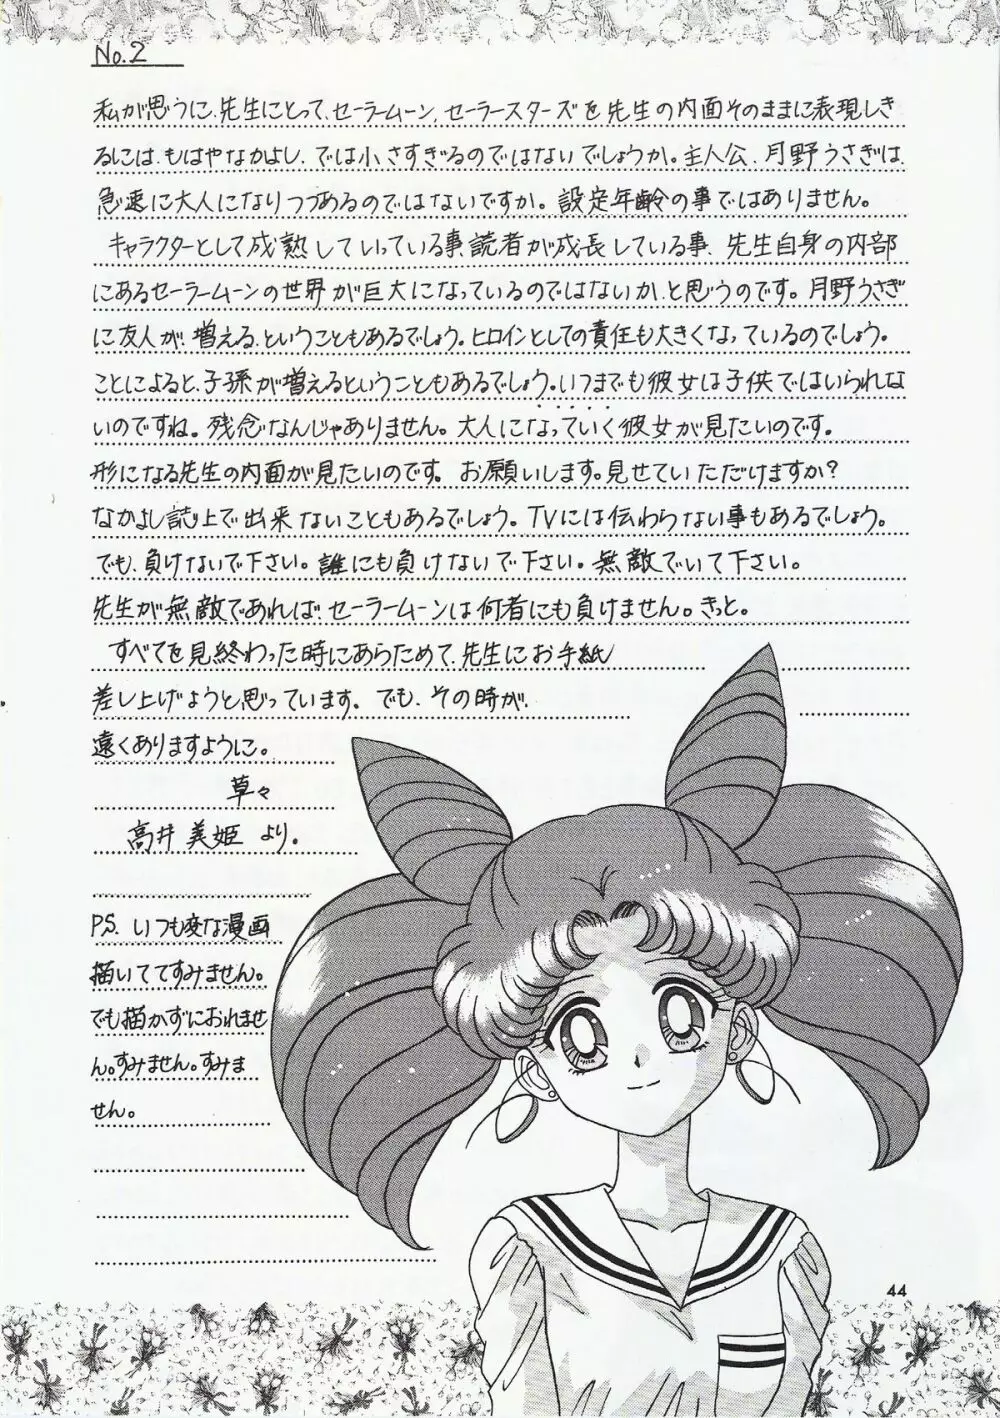 No.2
私が思うに、先生にとって、セーラームーン、セーラースターズを先生の内面そのままに表現しき
るには、もはやなかよし、では小さすぎるのではないでしょうか。主人公、月野うさぎは、
急速に大人になりつつあるのではないですか。設定年齢の事ではありません。
キャラクターとして成熟していっている事、読者が成長している事、先生自身の内部
にあるセーラームーンの世界が巨大になっているのではないか、と思うのです。月野うさぎ
に友人が、増える、ということもあるでしょう。ヒロインとしての責任も大きくなっているのでしょう。
ことによると、子孫が増えるということもあるでしょう。いつまでも彼女は子供ではいられな
いのですね。残念なんじゃありません。大人になっていく彼女が見たいのです。
形になる先生の内面が見たいのです。お願いします。見せていただけますか?
なかよし誌上で出来ないこともあるでしょう。TVには伝わらない事もあるでしょう。
でも、負けないで下さい。誰にも負けないで下さい。無敵でいて下さい。
先生が無敵であれば、セーラームーンは何者にも負けません。きっと。
すべてを見終わった時にあらためて、先生にお手紙
差し上げようと思っています。でも、その時が、
遠くありますように。
草々
高井 美姫 より。
P.S. いつも変な漫画
描いててすみません。
でも描かずにおれませ
ん。すみません。すみま
せん。
44